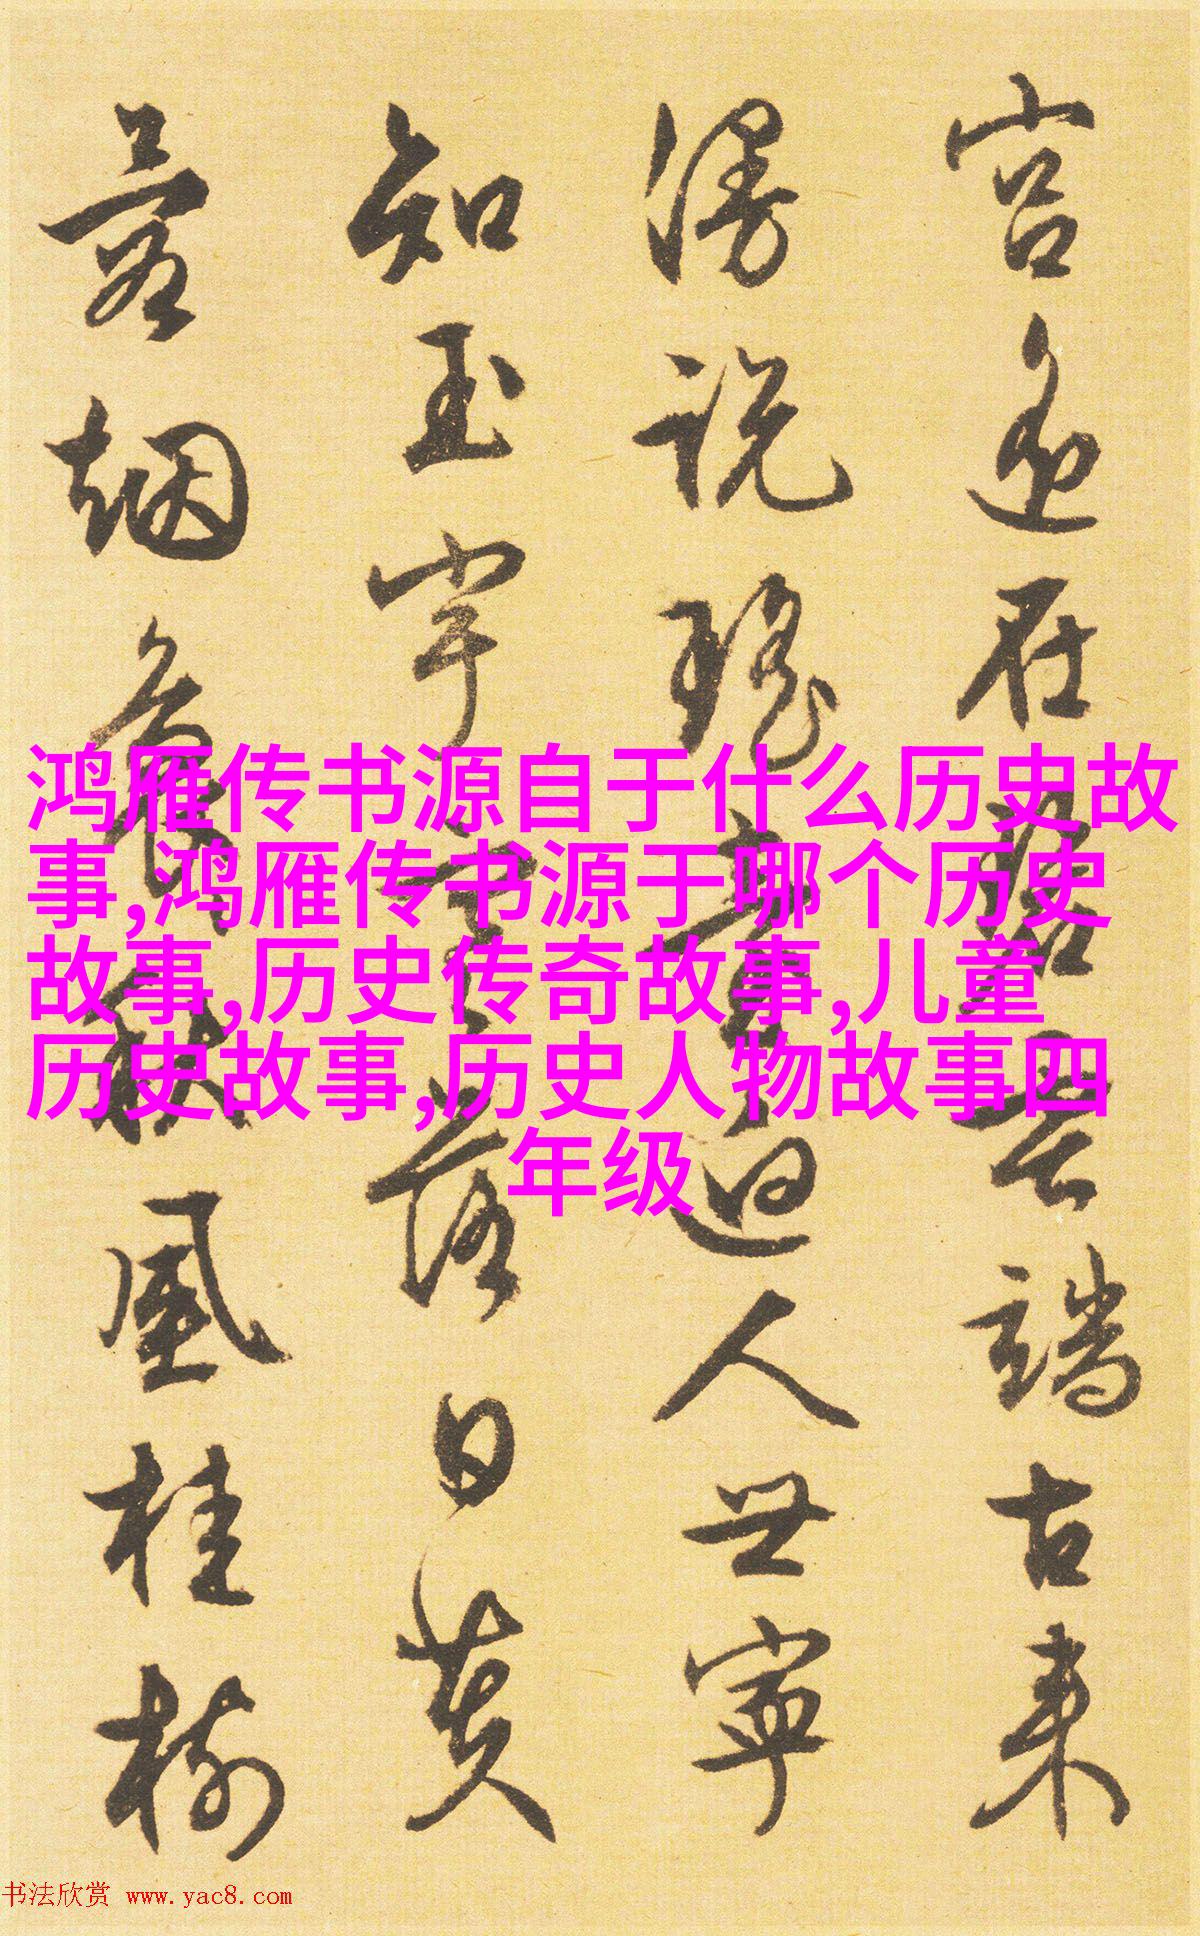 宮遥在碧雲端古来
漫説瑶臺迥人世寧
知玉宇寒落日芙
蓉烟裊秋風桂樹
鸿雁传书源自于什么历史故
事,鸿雁传书源于哪个历史
故事,历史传奇故事,儿童
历史故事,历史人物故事四
年级
书法欣赏 www.yac8.com